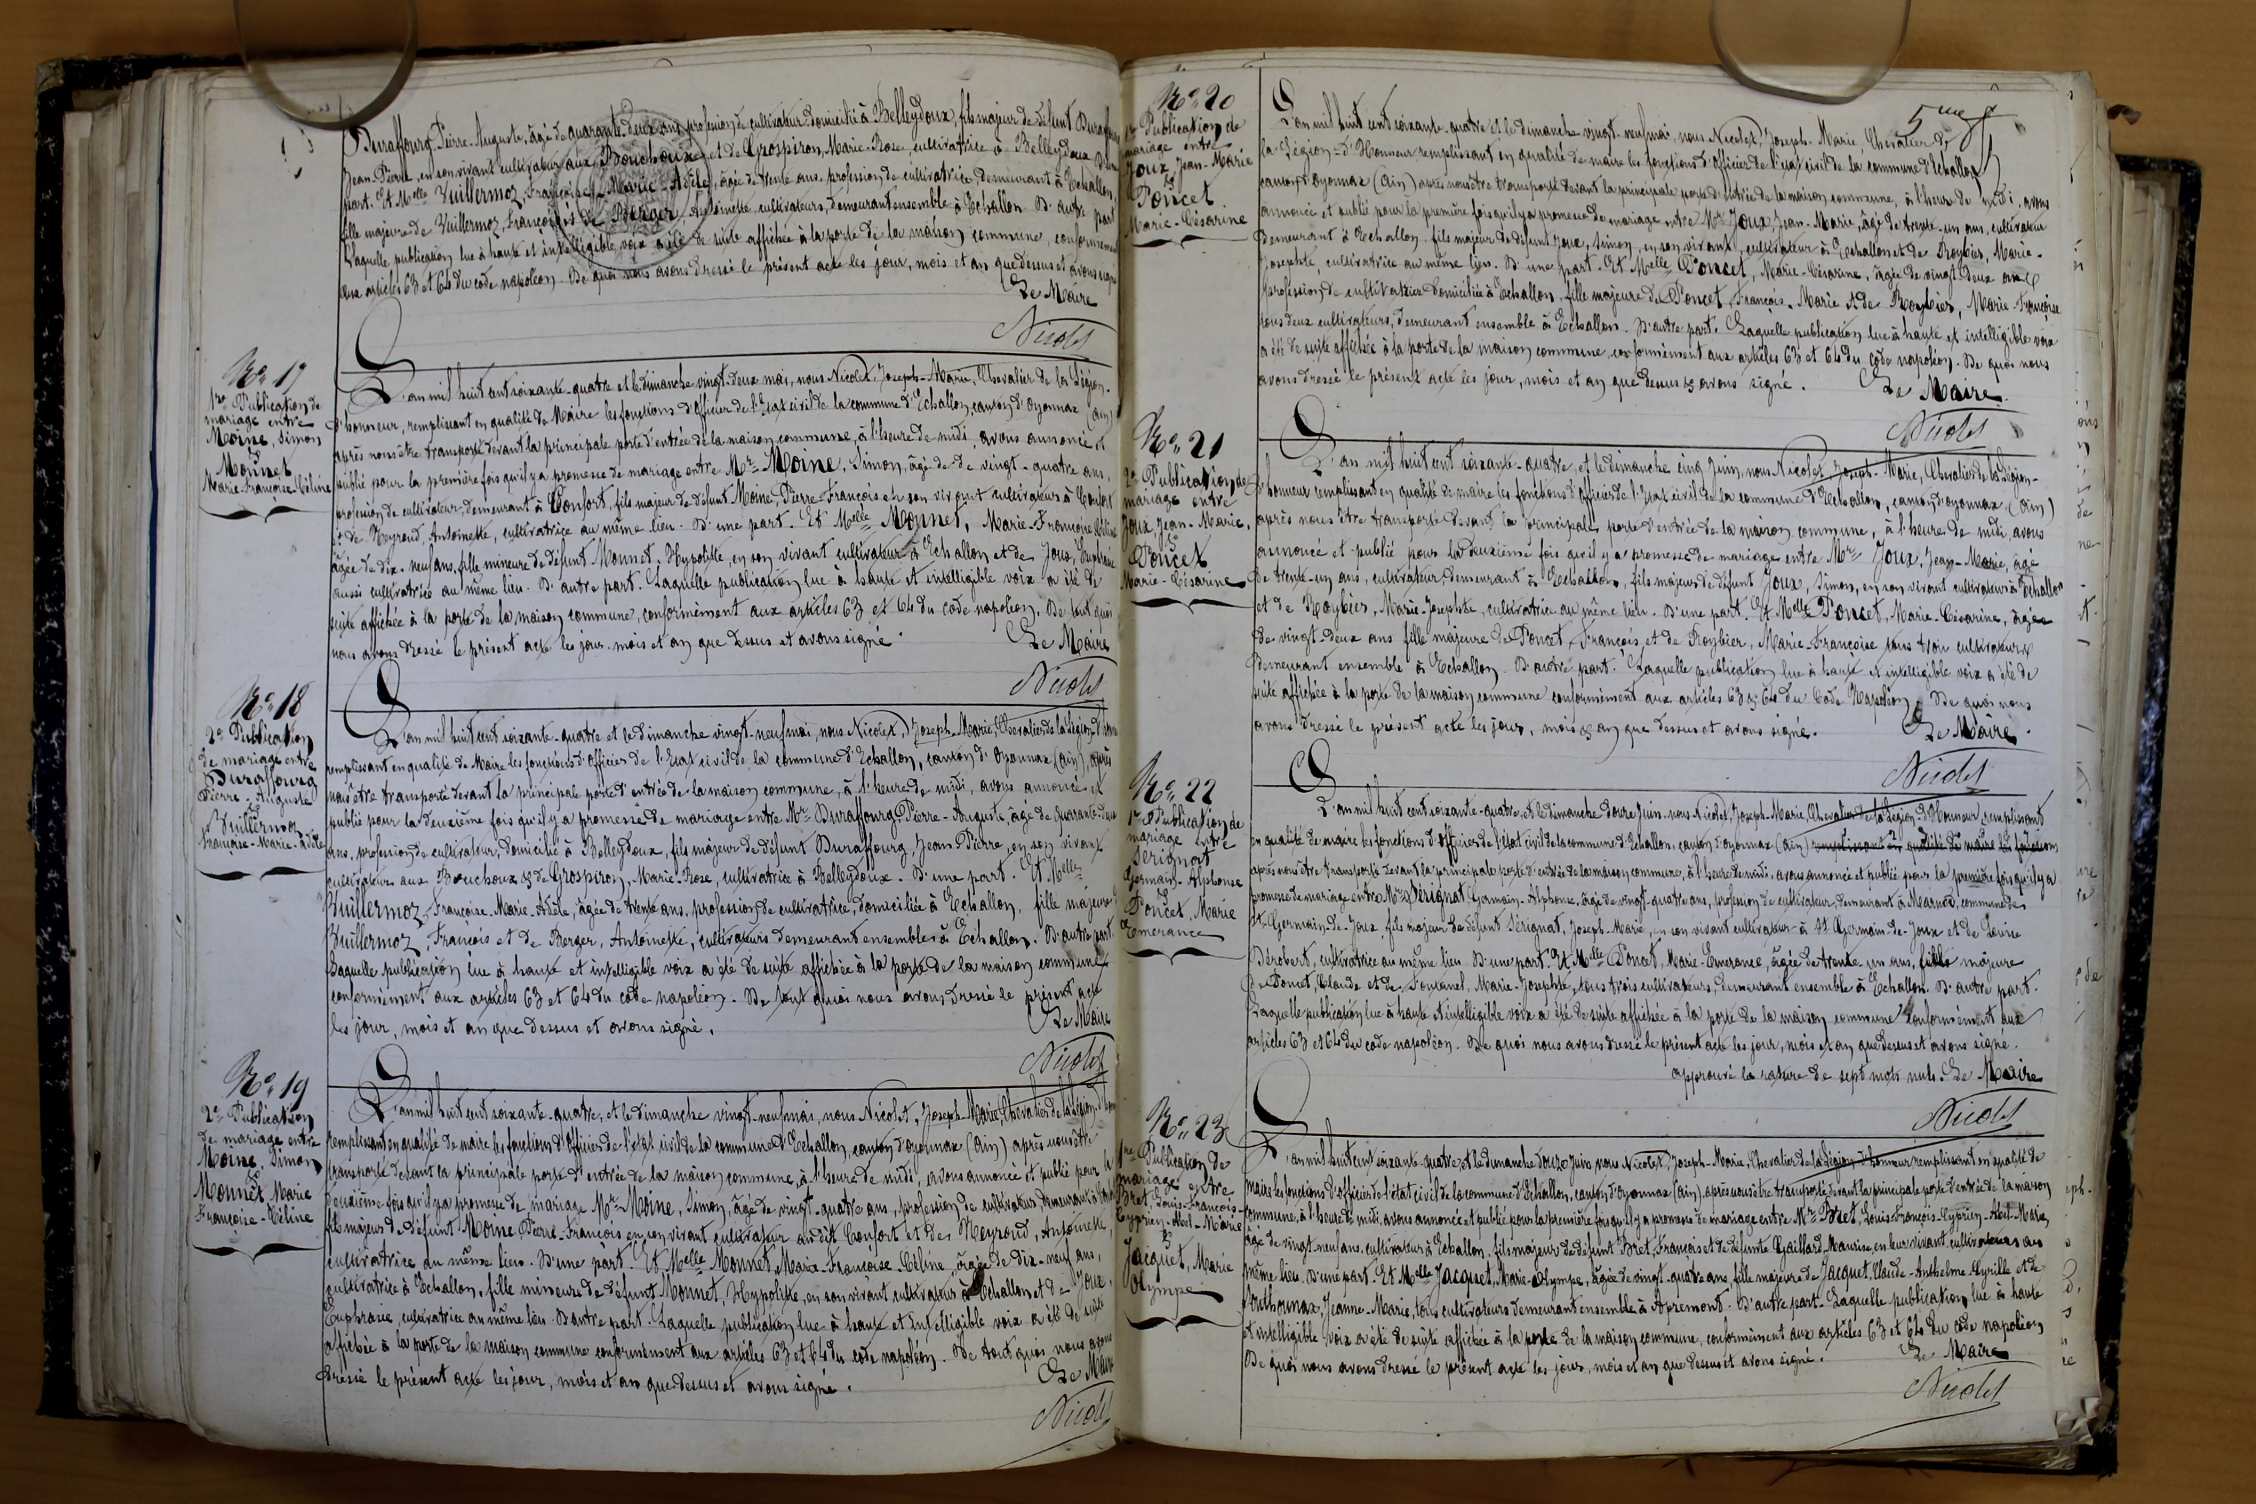 Duraffourg Pierre-Auguste, âgé de quarante-deux ans, profession de cultivateur domicilié à Belleydoux, fils majeur de défunt Duraffourg
Jean-Pierre, en son vivant cultivateur aux Bouchoux et de Grospiron, Marie-Rose, cultivatrice à Belleydoux D'une
part. Et Melle Vuillermoz, Françoise-Marie-Adèle, âgée de trente ans, profession de cultivatrice, demeurant à Echallon,
fille majeure de Vuillermoz, François et de Berger, Antoinette, cultivateurs, demeurant ensemble à Echallon D'autre part
Laquelle publication lue à haute et intelligible voix a été de suite affichée à la porte de la maison commune, conformément
aux articles 63 et 64 du code napoléon. De quoi nous avons dressé le présent acte les jour, mois et an que dessus et avons signé
Le Maire
Nicolet
No 17
1re Publication de
mariage entre
Moine, Simon
&
Monnet
Marie-Françoise-Céline
L'an mil huit cent soixante-quatre et le dimanche vingt-deux mai, nous Nicolet, Joseph-Marie, Chevalier de la Légion-
d'honneur, remplissant en qualité de Maire les fonctions d'Officier de l'Etat civil de la commune d'Echallon, canton d'Oyonnax (ain)
après nous être transporté devant la principale porte d'entrée de la maison commune, à l'heure de midi, avons annoncé et
publié pour la première fois qu'il y a promesse de mariage entre Mr Moine, Simon, âgé de de vingt-quatre ans,
profession de cultivateur, demeurant à Confort, fils majeur de défunt Moine, Pierre-François en son vivant cultivateur à Confort
et de Neyroud, Antoinette, cultivatrice au même lieu. D'une part. Et Melle Monnet, Marie-Françoise Céline
âgée de dix-neuf ans, fille mineure de défunt Monnet, Hypolitte, en son vivant cultivateur à Echallon et de Joux, Euphraie
aussi cultivatrice au même lieu. D'autre part. Laquelle publication lue à haute et intelligible voix a été de
suite affichée à la porte de la maison commune, conformément aux articles 63 et 64 du code napoléon. De tout quoi
nous avons dressé le présent acte les jour, mois et an que dessus et avons signé.
Le Maire
Nicolet
No 18
2e Publication
de mariage entre
Duraffourg
Pierre-Auguste
&
Vuillermoz
Françoise-Marie-Adèle
L'an mil huit cent soixante-quatre et le dimanche vingt-neuf mai, nous Nicolet, Joseph-Marie, Chevalier de la Légion d'honneur
remplissant en qualité de Maire les fonctions d'Officier de l'Etat civil de la commune d'Echallon, canton d'Oyonnax (ain), après
nous être transporté devant la principale porte d'entrée de la maison commune, à l'heure de midi, avons annoncé et
publié pour la deuxième fois qu'il y a promesse de mariage entre Mr Duraffourg Pierre-Auguste, âgé de quarante-deux
ans, profession de cultivateur, domicilié à Belleydoux, fils majeur de défunt Duraffourg, Jean Pierre, en son vivant
cultivateur aux Bouchoux & de Grospiron, Marie-Rose, cultivatrice à Belleydoux. D'une part. Et Melle
Vuillermoz, Françoise-Marie-Adèle, âgée de trente ans, profession de cultivatrice, domiciliée à Echallon, fille majeure de
Vuillermoz, François et de Berger, Antoinette, cultivateurs demeurant ensemble à Echallon. D'autre part.
Laquelle publication lue à haute et intelligible voix a été de suite affichée à la porte de la maison commune
conformément aux articles 63 et 64 du code napoléon. De tout quoi nous avons dressé le présent acte
les jour, mois et an que dessus et avons signé.
Le Maire
Nicolet
No 19
2e Publication
de mariage entre
Moine, Simon
&
Monnet Marie
Françoise-Céline
L'an mil huit cent soixante-quatre, et le dimanche vingt-neuf mai, nous Nicolet, Joseph-Marie, Chevalier de la Légion-d'honneur
remplissant en qualité de maire les fonctions d'Officier de l'état civil de la commune d'Echallon, canton d'oyonnax (Ain) après nous être
transporté devant la principale porte d'entrée de la maison commune, à l'heure de midi, avons annoncé et publié pour la
deuxième fois qu'il y a promesse de mariage Mr Moine, Simon, âgé de vingt-quatre ans, profession de cultivateur, demeurant à Confort
fils majeur de défunt Moine, Pierre-François en son vivant cultivateur au dit Confort et de Neyroud, Antoinette,
cultivatrice au même lieu. D'une part. Et Melle Monnet, Marie-Françoise-Céline, âgée de dix-neuf ans,
cultivatrice à Echallon, fille mineure de défunt Monnet, Hypolitte, en son vivant cultivateur à Echallon et de Joux,
Euphraie, cultivatrice au même lieu D'autre part. Laquelle publication lue à haute et intelligible voix a été de suite
affichée à la porte de la maison commune conformément aux articles 63 et 64 du code napoléon. De tout quoi nous avons
dressé le présent acte les jour, mois et an que dessus et avons signé.
Le Maire
Nicolet
5me f
No 20
1re Publication de
mariage entre
Joux, Jean-Marie
&
Poncet
Marie-Césarine
L'an mil huit cent soixante-quatre et le dimanche vingt-neuf mai, nous Nicolet, Joseph-Marie Chevalier de
la Légion-d'Honneur remplissant en qualité de maire les fonctions d'Officier de l'Etat civil de la commune d'Echallon,
canton d'Oyonnax (Ain) après nous être transporté devant la principale porte d'entrée de la maison commune, à l'heure de midi, avons
annoncé et publié pour la première fois qu'il y a promesse de mariage entre Mr Joux, Jean-Marie, âgé de trente-un ans, cultivateur
demeurant à Echallon, fils majeur de défunt Joux, Simon, en son vivant cultivateur à Echallon et de Roybier, Marie-
Josephte, cultivatrice au même lieu. D'une part. Et Melle Poncet, Marie-Césarine, âgée de vingt-deux ans
profession de cultivatrice domiciliée à Echallon, fille majeure de Poncet, François-Marie et de Roybier, Marie-Françoise
tous deux cultivateurs, demeurant ensemble à Echallon. D'autre part. Laquelle publication lue à haute et intelligible voix
a été de suite affichée à la porte de la maison commune, conformément aux articles 63 et 64 du Code napoléon. De quoi nous
avons dressé le présent acte les jour, mois et an que dessus & avons signé.
Le Maire.
Nicolet
No 21
2e Publication de
mariage entre
Joux Jean-Marie,
&
Poncet
Marie-Césarine
L'an mil huit cent soixante-quatre, et le dimanche cinq Juin, nous Nicolet, Joseph-Marie, Chevalier de la Légion-
d'honneur remplissant en qualité de maire les fonctions d'Officier de l'Etat civil de la commune d'Echallon, canton d'oyonnax (Ain)
après nous être transporté devant la principale porte d'entrée de la maison commune, à l'heure de midi, avons
annoncé et publié pour la deuxième fois qu'il y a promesse de mariage entre Mr Joux, Jean-Marie, âgé
de trente-un ans, cultivateur demeurant à Echallon, fils majeur de défunt Joux, Simon, en son vivant cultivateur à Echallon
et de Roybier, Marie-Josephte, cultivatrice au même lieu. D'une part. Et Melle Poncet, Marie-Césarine, âgée
de vingt-deux ans fille majeure de Poncet, François et de Roybier, Marie-Françoise tous trois cultivateurs
demeurant ensemble à Echallon. D'autre part. Laquelle publication lue à haute et intelligible voix a été de
suite affichée à la porte de la maison commune conformément aux articles 63 & 64 du Code Napoléon. De quoi nous
avons dressé le présent acte les jour, mois & an que dessus et avons signé.
Le Maire.
Nicolet
No 22
1re Publication de
mariage entre
Sérignat
Germain-Alphonse
&
Poncet, Marie
Emerance
L'an mil huit cent soixante-quatre, et le dimanche douze Juin, nous Nicolet, Joseph-Marie, Chevalier de la Légion d'Honneur remplissant
en qualité de maire les fonctions d'Officier de l'état civil de la commune d'Echallon, canton d'Oyonnax (Ain) remplissant en qualité de maire les fonctions
après nous être transporté devant la principale porte d'entrée de la maison commune, à l'heure de midi, avons annoncé et publié pour la première fois qu'il y a
promesse de mariage entre Mr Sérignat, Germain-Alphonse, âgé de vingt-quatre ans, profession de cultivateur, demeurant à Marnod, commune de
St Germain-de-Joux, fils majeur de défunt Sérignat, Joseph-Marie, en son vivant cultivateur à St Germain-de-Joux et de Louise
Dérobert, cultivatrice au même lieu. D'une part. Et Melle Poncet, Marie-Emerance, âgée de trente-un ans, fille majeure
de Poncet, Claude et de Fontanel, Marie-Josephte, tous trois cultivateurs, demeurant ensemble à Echallon. D'autre part.
Laquelle publication lue à haute et intelligible voix a été de suite affichée à la porte de la maison commune conformément aux
articles 63 et 64 du code napoléon. De quoi nous avons dressé le présent acte les jour, mois et an que dessus et avons signé.
approuvé la rature de sept mots nuls. Le Maire
Nicolet
No 23
1re Publication de
mariage entre
Bret, Louis-François-
Cyprien-Abel-Marie
&
Jacquet, Marie
Olympe
L'an mil huit cent soixante-quatre et le dimanche douze Juin nous Nicolet, Joseph-Marie, Chevalier de la Légion d'honneur remplissant en qualité de
maire les fonctions d'officier de l'état civil de la commune d'Echallon, canton d'Oyonnax (Ain), après nous être transporté devant la principale porte d'entrée de la maison
commune, à l'heure de midi, avons annoncé et publié pour la première fois qu'il y a promesse de mariage entre Mr Bret, Louis-François-Cyprien-Abel-Marie,
âgé de vingt-neuf ans, cultivateur à Echallon, fils majeur de défunt Bret, François et de défunte Gaillard, Maurise, en leur vivant cultivateurs au
même lieu. D'une part. Et Melle Jacquet, Marie-Olympe, âgée de vingt-quatre ans, fille majeure de Jacquet, Claude-Anthelme-Cyrille et de
Jeanne-Marie, tous cultivateurs demeurant ensemble à Apremont. D'autre part. Laquelle publication lue à haute
et intelligible voix a été de suite affichée à la porte de la maison commune, conformément aux articles 63 et 64 du code napoléon
De quoi nous avons dressé le présent acte les jour, mois et an que dessus et avons signé.
Le Maire
Nicolet